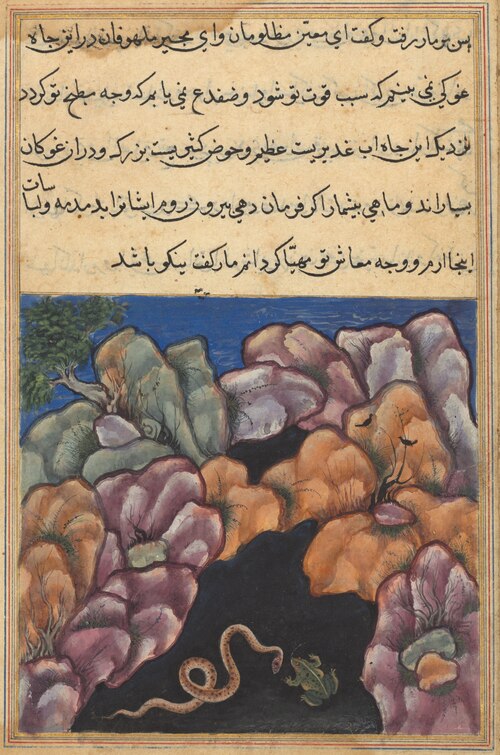 پس بر مار رفت و کفت ای معین مظلومان و ای مجیر ملهوفان در این جاه
غوکی نمی بینم که سبب قوت تو شود و ضفدع نمی یابم که وجه مطبخ تو کردد
نزدیک این جاه اب غدیریت عظیم و حوض کثیریست بزرک و در ان غوکان
بسیاراند و ماهی بیشمار اکر فرمان دهی بیرون روم ایشانرا بدمدمه و لباسات
اینجا ارم و وجه معاش تو مهیّا کردانم مار کفت نیکو باشد